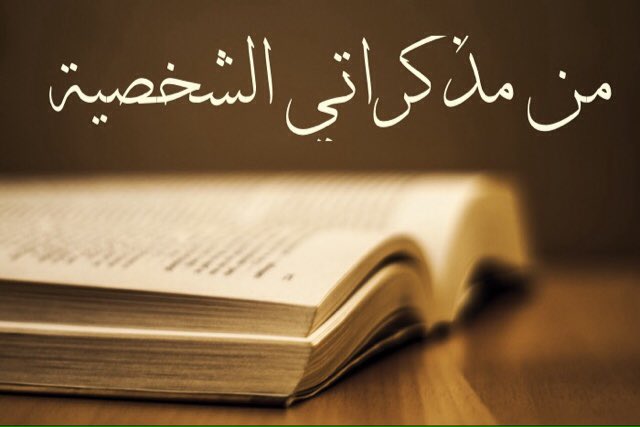 من مذكراتي الشخصية